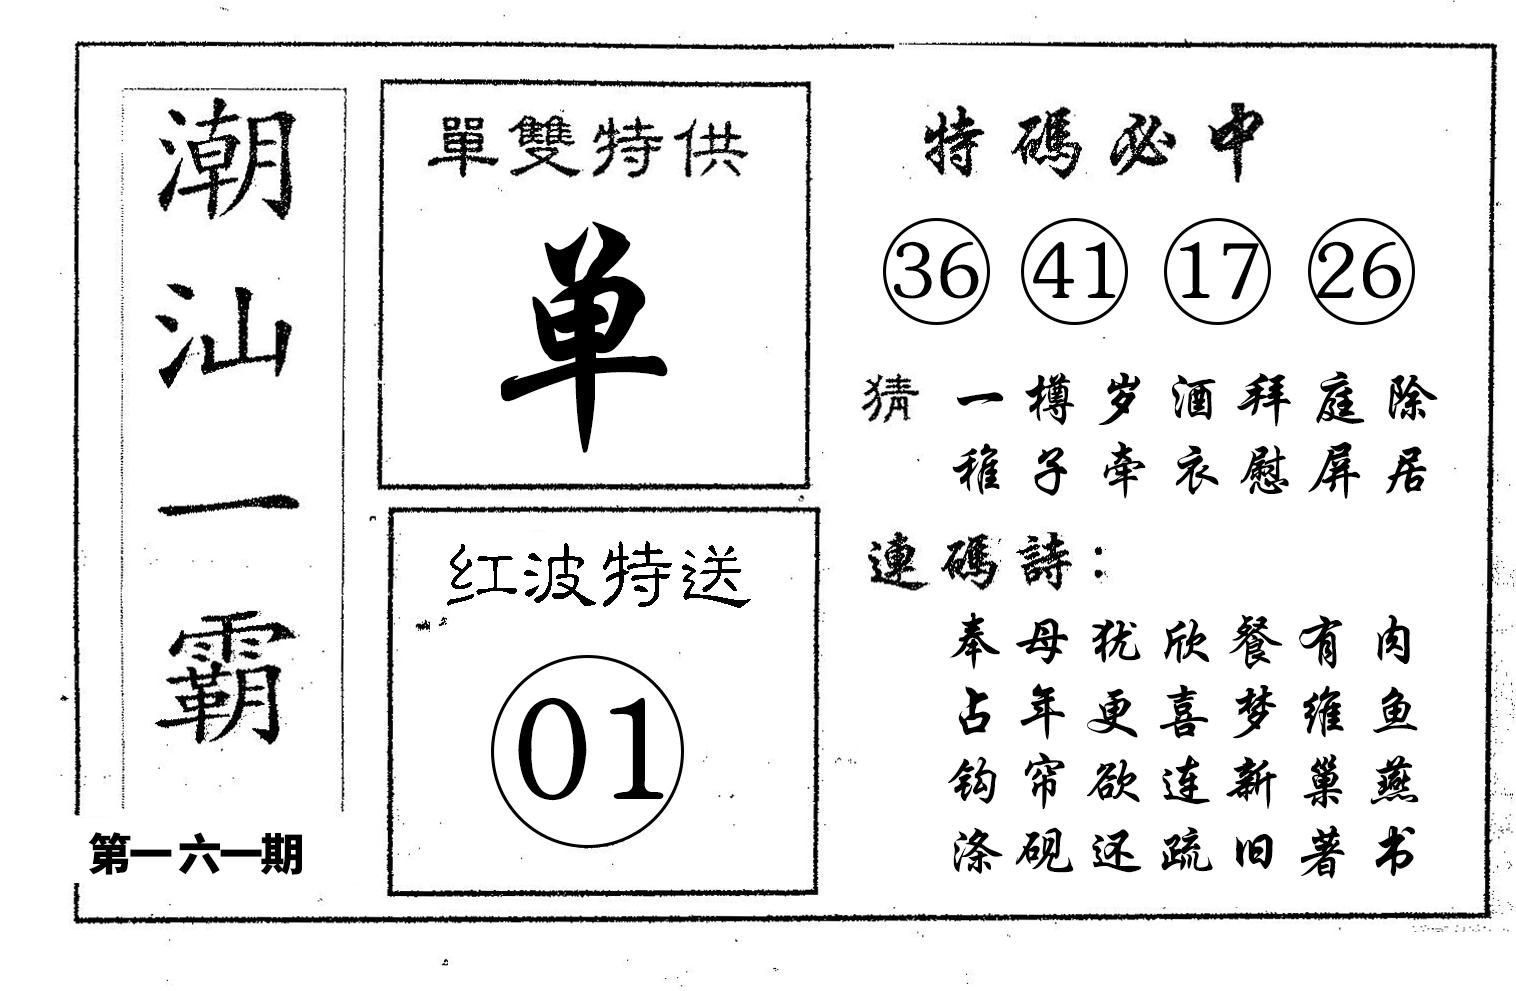 潮汕一霸
第一六一期
單雙特供
单
红波特送
01
特碼必中
36 41 17 26
猜 一樽岁酒拜庭除
稚子牵衣慰屏居
連碼詩：
奉母犹欣餐有肉
占年更喜梦维鱼
钩帘欲连新巢燕
涤砚还疏旧著书